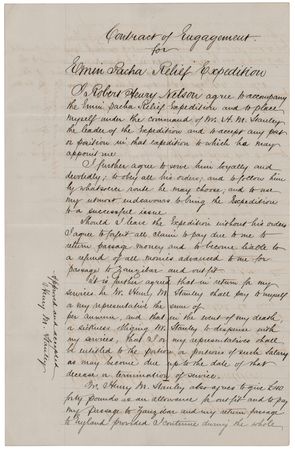 Contract of Engagement
for
Emin Pacha Relief Expedition
I, Robert Henry Nelson agree to accompany
the Emin Pacha Relief Expedition and to place
myself under the command of Mr. H. M. Stanley
the leader of the Expedition and to accept any post
or position in that expedition to which he may
appoint me.
I further agree to serve him loyally and
devotedly; to obey all his orders; and to follow him
by whatsoever route he may choose, and to use
my utmost endeavours to bring the Expedition
to a successful issue
Should I leave the Expedition without his orders
I agree to forfeit all claim to pay due to me to
return passage money and to become liable to
a refund of all monies advanced to me for
passage to Zanzibar and outfit
It is further agreed that in return for my
services he Mr Henry M. Stanley shall pay to myself
or my representatives the sum of
per annum, and that in the event of my death
or sickness obliging Mr Stanley to dispense with
my services, that I or my representatives shall
be entitled to the portion or portions of such salary
as may become due up to the date of that
decease or termination of service.
Mr. Henry M. Stanley also agrees to give £40
forty pounds as an allowance for outfit and to pay
my passage to Zanzibar and my return passage
to England provided I continue during the whole
Approved and accepted
Henry M. Stanley